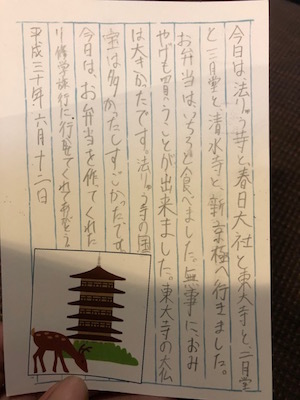 今日は、法りゅう寺と、春日大社と東大寺と、二月堂
と三月堂と、清水寺と、新京極へ行きました。
お弁当は、いろいろと食べました。無事に、おみ
やげも買うことが出来ました。東大寺の大仏
は大きかったです。法りゅう寺の国
宝は多かったしすごかったです。
今日は、お弁当を作てくれた
り修学旅行に行かせてくれてありがとう
平成三十年六月十二日